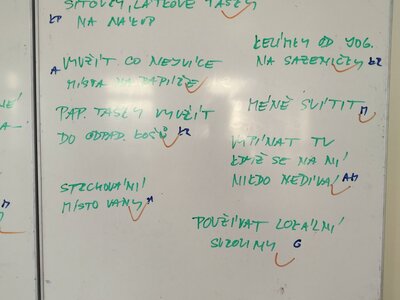 SÍŤOVKY, LÁTKOVÉ TAŠKY
NA NÁKUP
VYUŽÍT CO NEJVÍCE
MÍSTA NA PAPÍŘE
PAP. TAŠKY VYUŽÍT
DO ODPAD. KOŠŮ
STRCHOVÁNÍ
MÍSTO VANY
KELÍMKY OD JOG.
NA SAZENIČKY
MÉNĚ SVÍTIT
VYPÍNAT TV
KDYŽ SE NA NÍ
NIKDO NEDÍVÁ
POUŽÍVAT LOKÁLNÍ
SUROVINY G